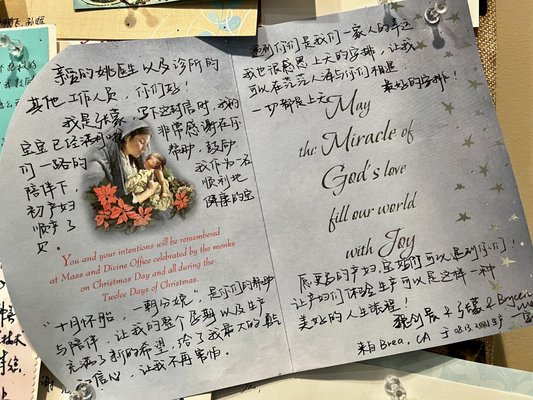 亲爱的姚医生以及诊所的
其他工作人员，你们好！
我是张慕，写下这封信时，我的
宝宝已经满月啦，非常感谢在你
们一路的 帮助，鼓励，
陪伴下， 我作为一名
初产妇 顺利地
顺产了 健康的宝
贝。
You and your intentions will be remembered
at Mass and Divine Office celebrated by the monks
on Christmas Day and all during the
Twelve Days of Christmas.
"十月怀胎，一朝分娩，是你们的帮助
与陪伴，让我的整个孕期以及生产
充满了新的希望，给了我最大的鼓励
信心，让我不再害怕。
遇到你们是我们一家人的幸运
我也很感恩上天的安排，让我
可以在茫茫人海与你们相遇
一切都是上天 最好的安排！
May
the Miracle of
God's love
fill our world
with Joy
愿更多的产妇，宝妈们可以遇到你们！
让产妇们体验生产可以是这样一种
美好的人生旅程！
张慕 & Bryce
来自 Brea, CA 于 08.13.2021 生产